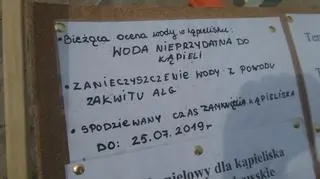 • Bieżąca ocena wody w kąpielisku:
WODA NIEPRZYDATNA DO
KĄPIELI
• ZANIECZYSZCZENIE WODY Z POWODU
ZAKWITU ALG.
• SPODZIEWANY CZAS ZAMKNIĘCIA KĄPIELISKA
DO: 25.07.2019r
dla kąpieliska